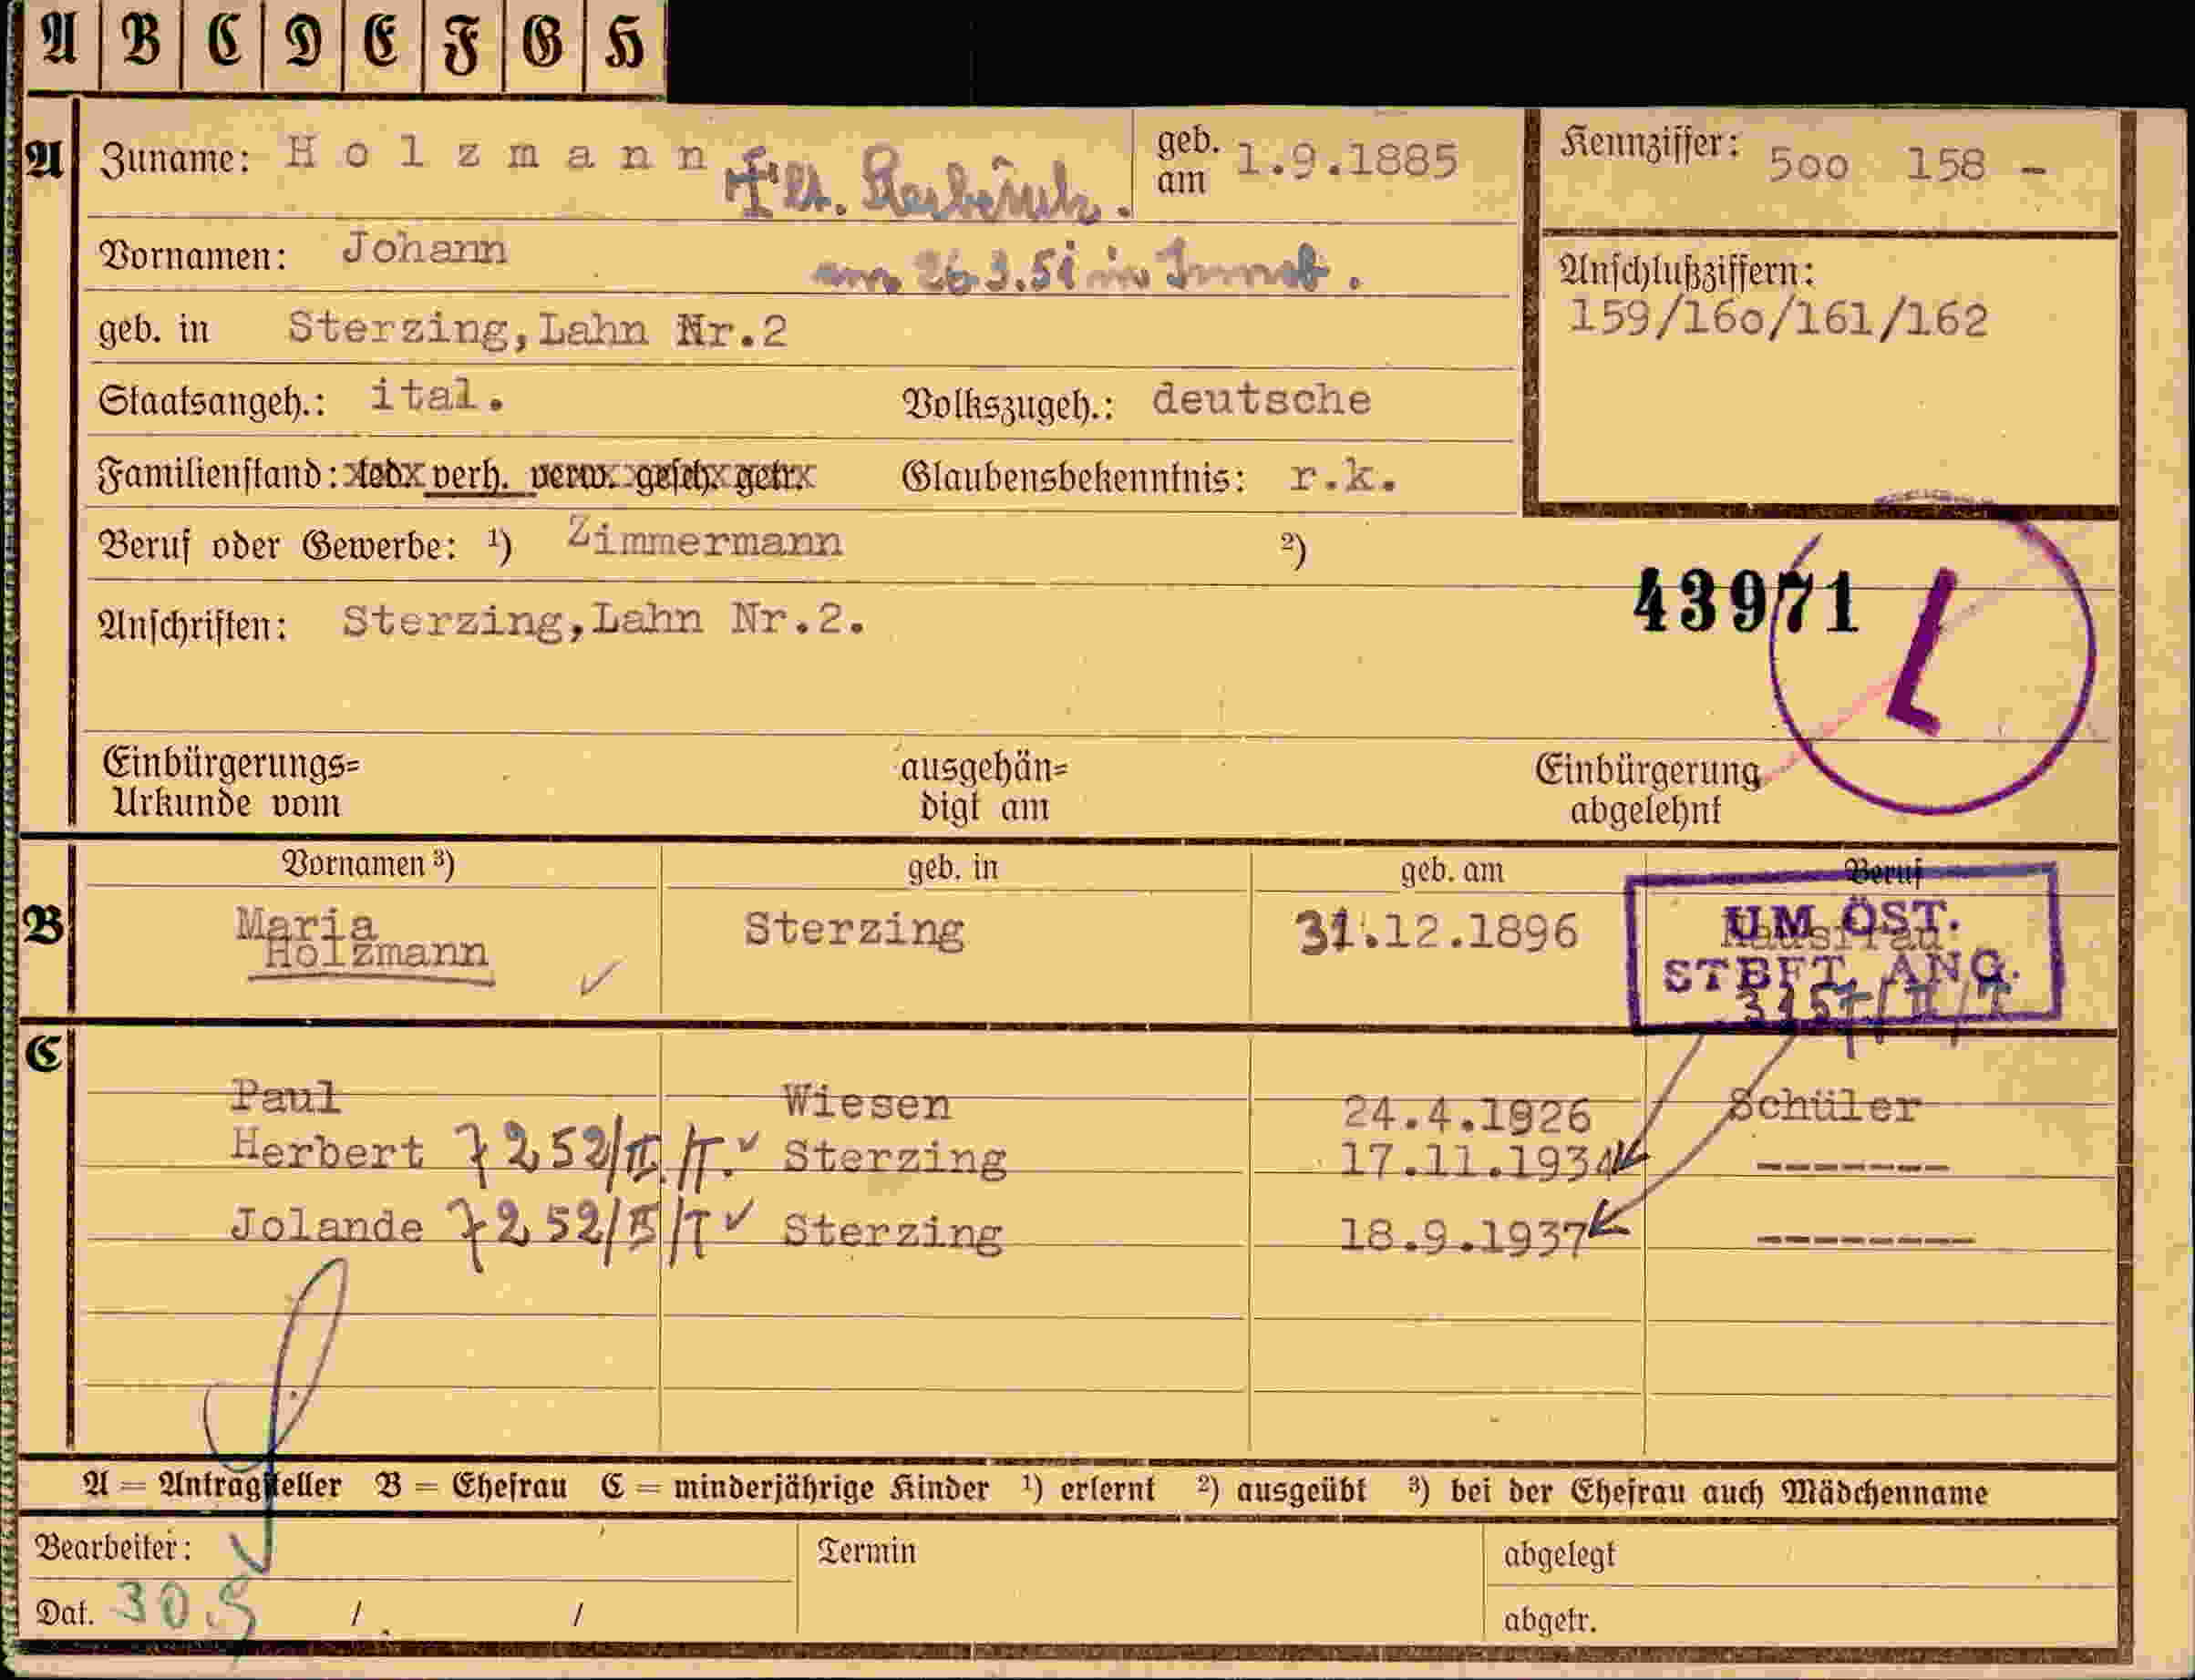 A B C D E F G H
A Zuname: Holzmann geb. am 1.9.1885
Kennziffer: 500 158 -
Vornamen: Johann
am 26.3.51 in Innsb.
Anschlußziffern:
159/160/161/162
geb. in Sterzing, Lahn Nr.2
Staatsangeh.: ital. Volkszugeh.: deutsche
Familienstand: led. verh. verw. gesch. getr. Glaubensbekenntnis: r.k.
Beruf oder Gewerbe: 1) Zimmermann 2)
43971 L
Anschriften: Sterzing, Lahn Nr.2.
Einbürgerungs= ausgehän= Einbürgerung
Urkunde vom digt am abgelehnt
Vornamen 3) geb. in geb. am Beruf
B Maria Sterzing 31.12.1896 Hausfrau
Holzmann
UM ÖST.
STBFT. ANG.
3157/II/T
C
Paul Wiesen 24.4.1926 Schüler
Herbert 7252/II/T. Sterzing 17.11.1934 -------
Jolande 7252/II/T Sterzing 18.9.1937 --------
A = Antragsteller B = Ehefrau C = minderjährige Kinder 1) erlernt 2) ausgeübt 3) bei der Ehefrau auch Mädchenname
Bearbeiter: Termin abgelegt
Dat. 30.9 / / abgetr.